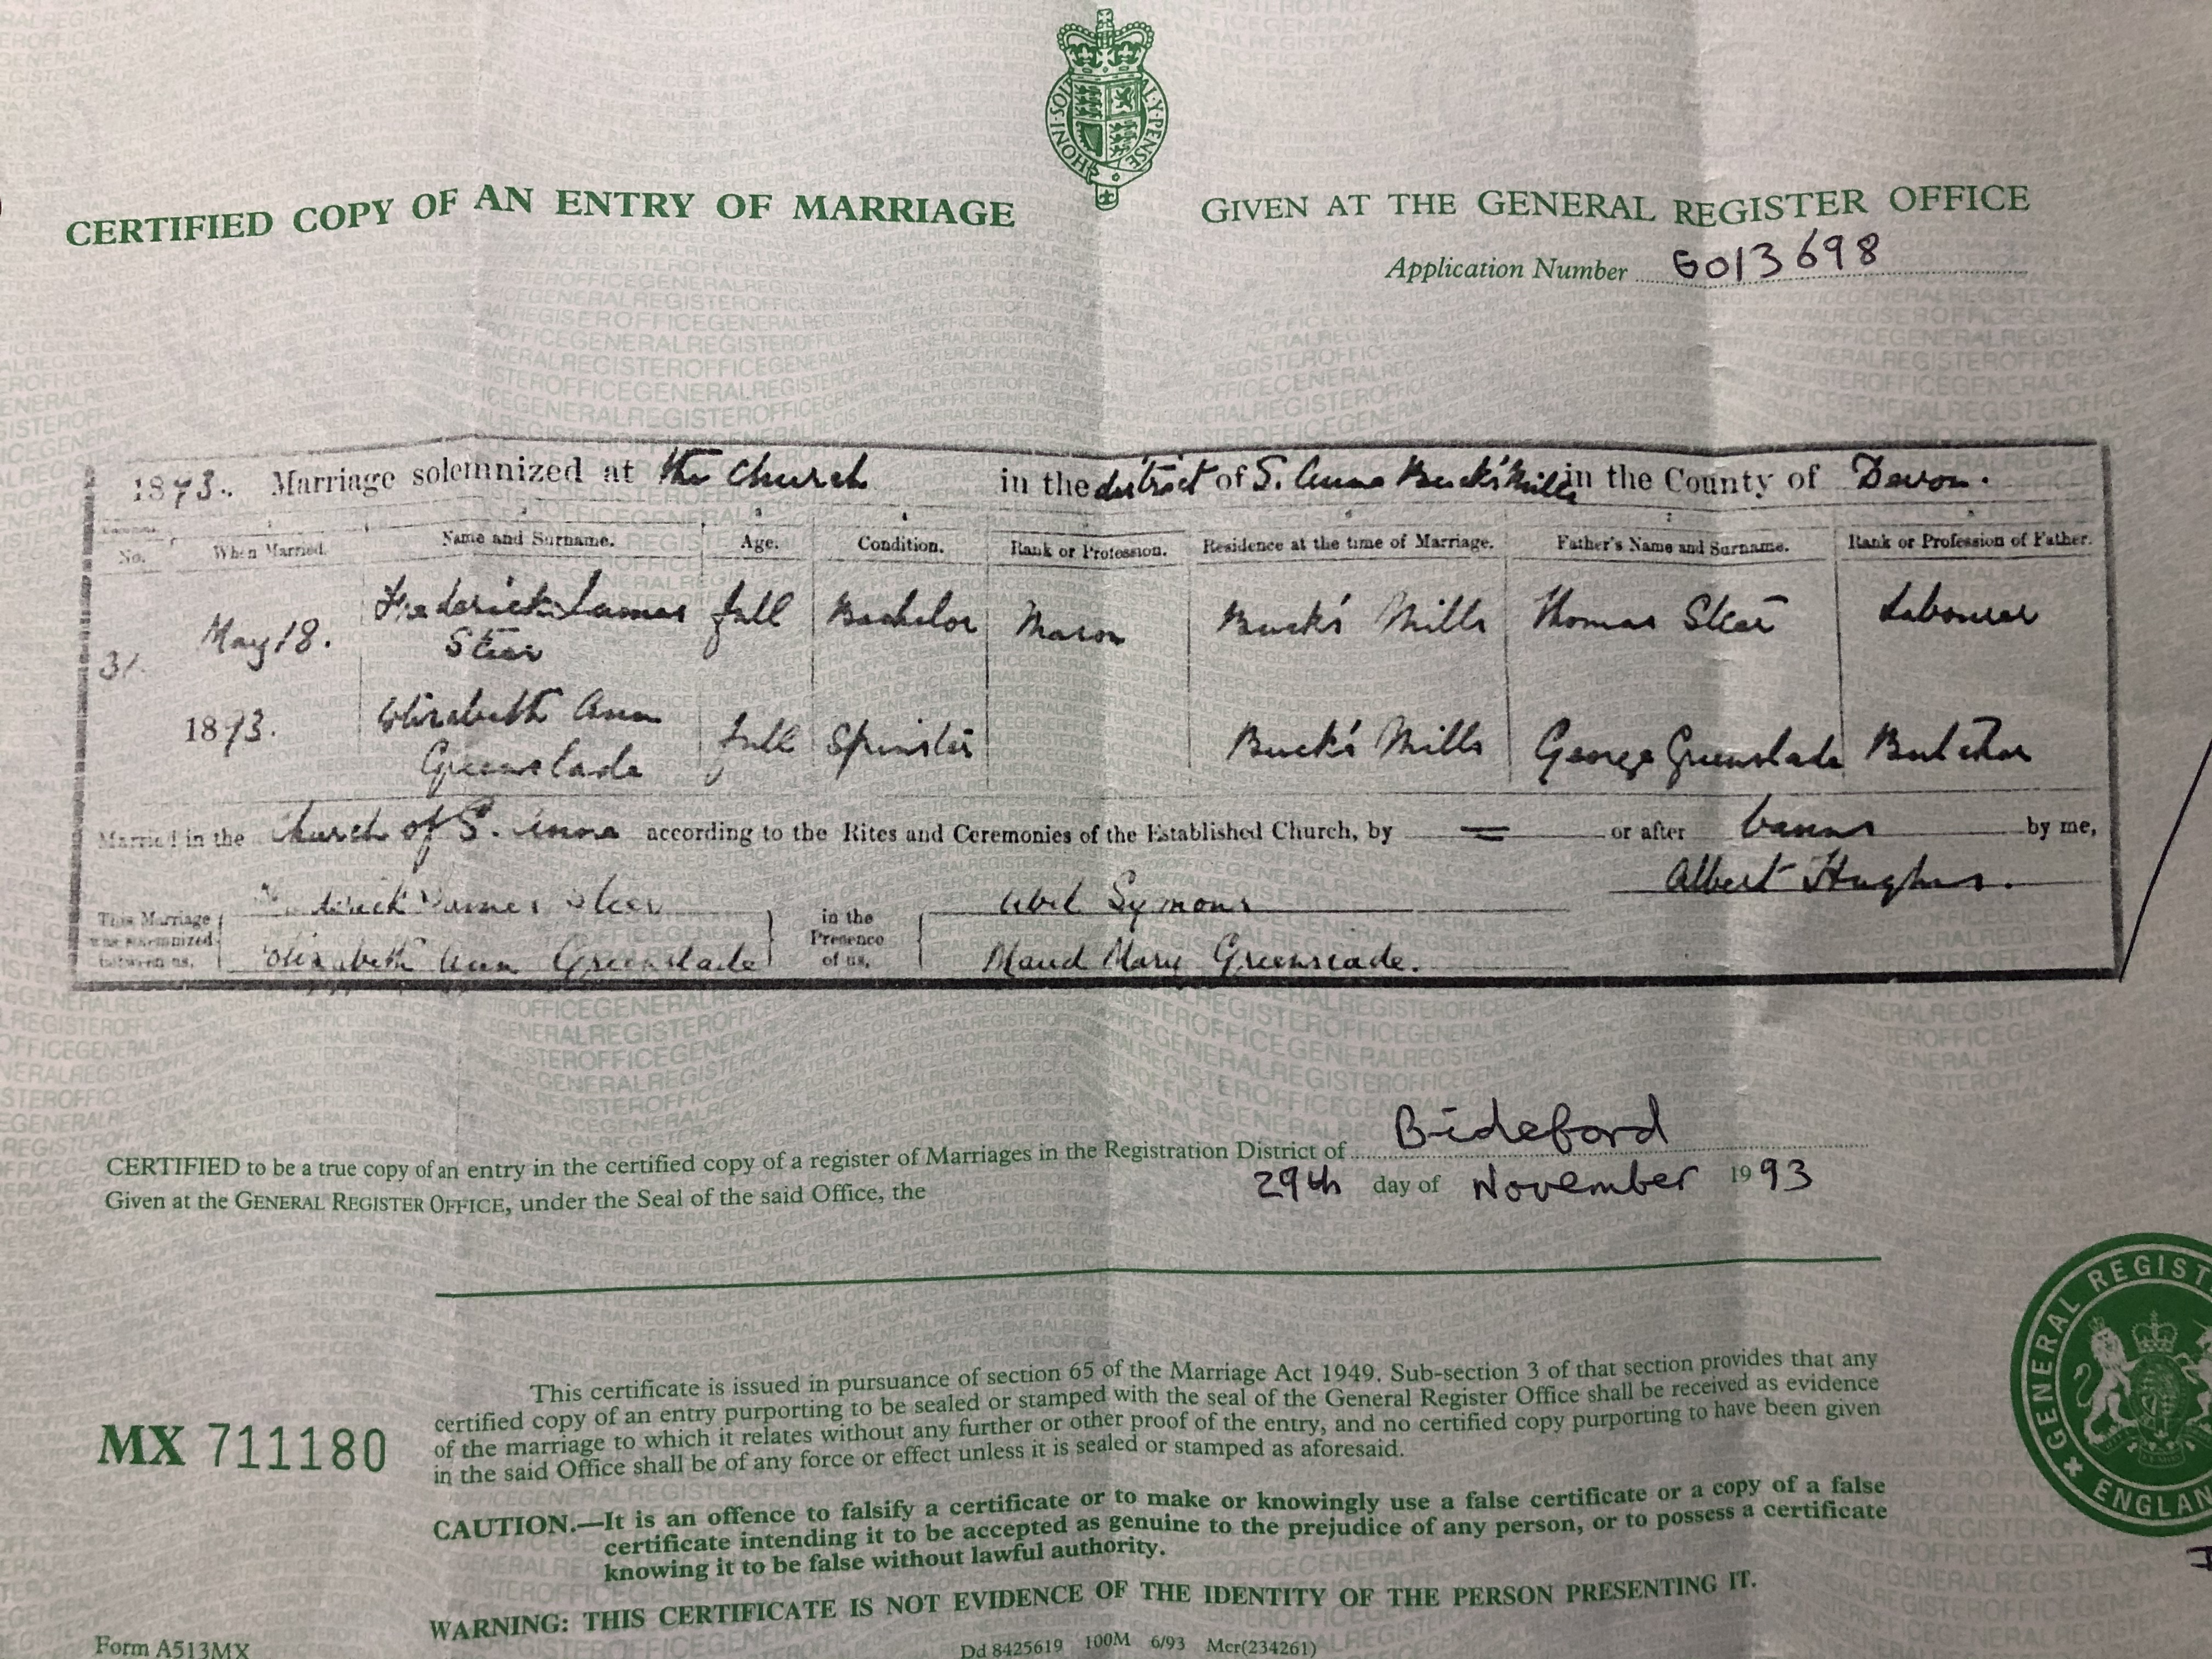 HONI·SOI AL·Y·PENSE
CERTIFIED COPY OF AN ENTRY OF MARRIAGE
GIVEN AT THE GENERAL REGISTER OFFICE
Application Number G013698
1893. Marriage solemnized at the Church in the district of S. Anne Buck's Mills in the County of Devon.
No. When Married. Name and Surname. Age. Condition. Rank or Profession. Residence at the time of Marriage. Father's Name and Surname. Rank or Profession of Father.
31. May 18. Frederick James Steer full Bachelor Mason Buck's Mills Thomas Steer Labourer
1893. Elizabeth Ann Greenslade full Spinster Buck's Mills George Greenslade Butcher
Married in the Church of S. Anne according to the Rites and Ceremonies of the Established Church, by = or after banns by me,
Albert Hughes.
This Marriage was solemnized between us, Frederick James Steer in the Presence of us, Abel Symons
Elizabeth Ann Greenslade Maud Mary Greenslade.
CERTIFIED to be a true copy of an entry in the certified copy of a register of Marriages in the Registration District of Bideford
Given at the GENERAL REGISTER OFFICE, under the Seal of the said Office, the 29th day of November 1993
MX 711180
This certificate is issued in pursuance of section 65 of the Marriage Act 1949. Sub-section 3 of that section provides that any
certified copy of an entry purporting to be sealed or stamped with the seal of the General Register Office shall be received as evidence
of the marriage to which it relates without any further or other proof of the entry, and no certified copy purporting to have been given
in the said Office shall be of any force or effect unless it is sealed or stamped as aforesaid.
CAUTION.—It is an offence to falsify a certificate or to make or knowingly use a false certificate or a copy of a false
certificate intending it to be accepted as genuine to the prejudice of any person, or to possess a certificate
knowing it to be false without lawful authority.
WARNING: THIS CERTIFICATE IS NOT EVIDENCE OF THE IDENTITY OF THE PERSON PRESENTING IT.
GENERAL REGIST
ENGLAN
Form A513MX
Dd 8425619 100M 6/93 Mcr(234261)